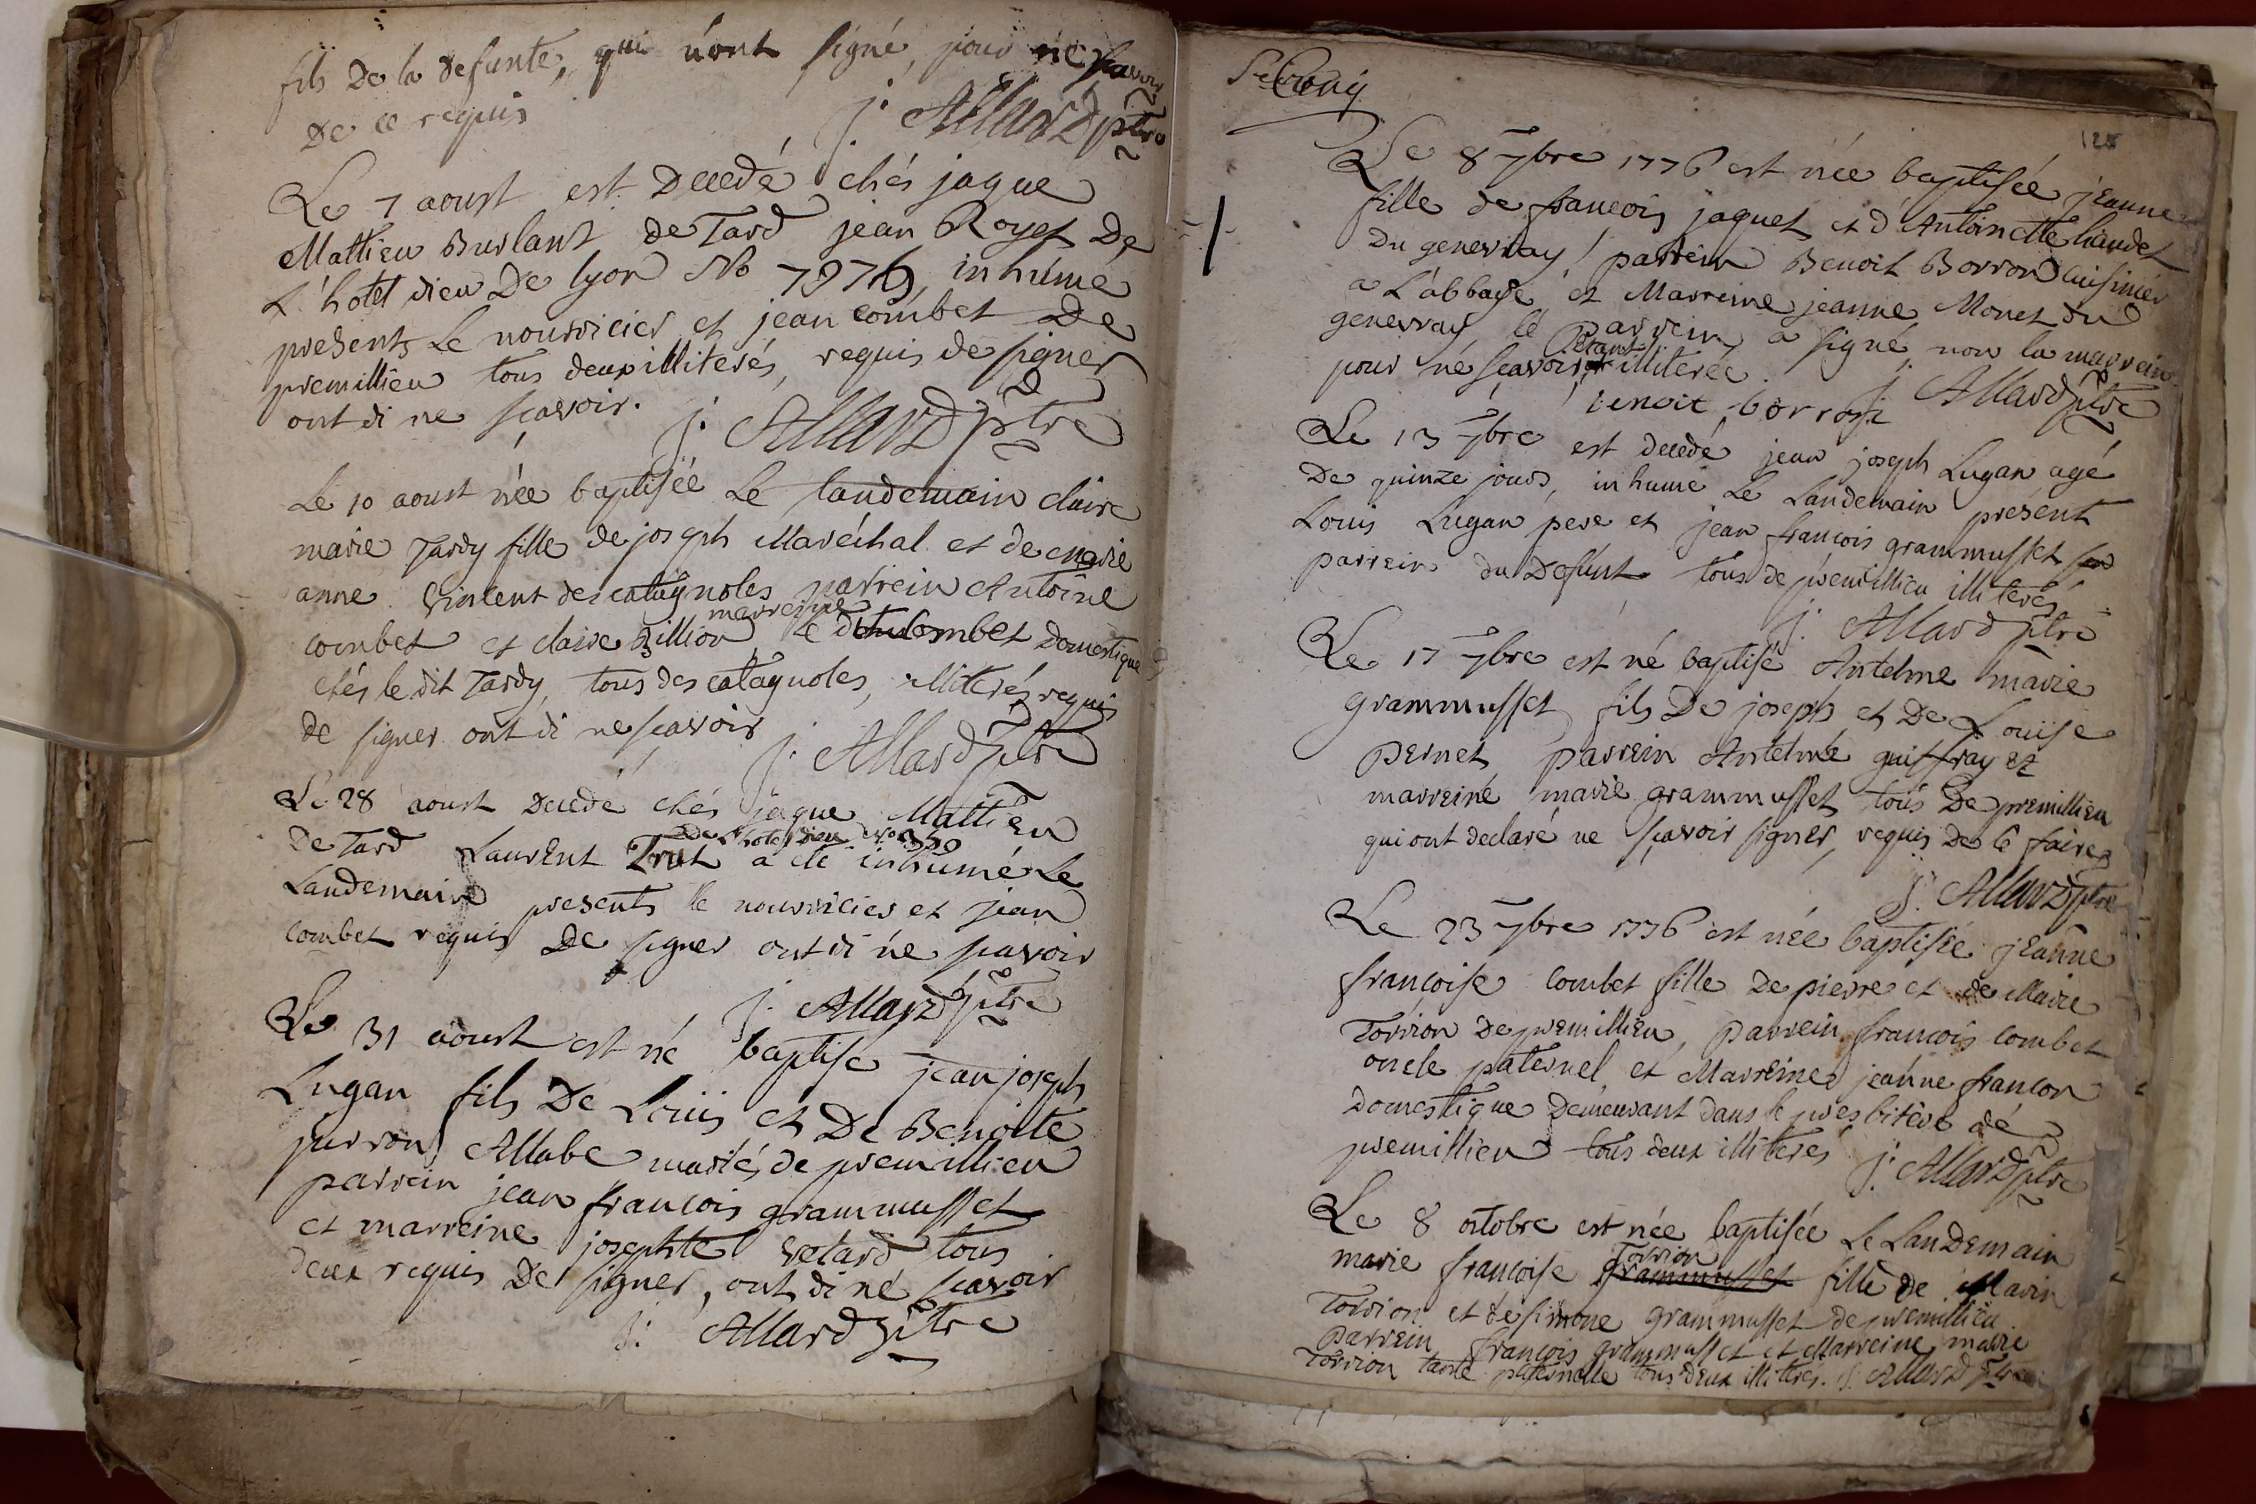 fils De la defunte, qui n'ont signé, pour ne scavoir
De ce requis
j. Allard ptre
Le 7 aoust est Decedé chés jaque
Mattieu Burlant de Tard jean Royet De
L'hotel dieu De lyon No 7976, inhumé
presents Le nourricier et jean combet De
premillieu tous deux illiterés, requis de signer
ont di ne scavoir.
j. Allard ptre
Le 10 aoust née baptisée Le landemain claire
marie Tardy fille de joseph Maréchal et de marie
anne vinlent des catagnoles parrein Antoine
marreine
combet et claire Billion, le dit Combet Domestique
chés le dit Tardy, tous des catagnoles, illiterés requis
de signer ont di ne scavoir
j. Allard ptre
Le 28 aoust Decedé chés jaque Mattieu
de l'hotel dieu No
de Tard Laurent Trut a été inhumé Le
Landemain presents le nourricier et jean
combet requis De signer ont di ne savoir
j. Allard ptre
Le 31 aoust est né baptise jean joseph
Lugan fils De Louis et De Benoite
purron Allabe mariés de premillieu
parrein jean francois grammusset
et marreine josephte vetard tous
deux requis De signer, ont di ne scavoir
j. Allard ptre
128
Le 8 7bre 1776 est née baptisée jeanne
fille de francois jaquet et d'Antoinette
Du genevray, parrein Benoit Borron cuisinier
a L'abbaye et Marreine jeanne Monet du
genevray le parrein a signé non la marreine
étant
pour ne scavoir illiterée.
j. Allard ptre
benoit borron
Le 13 7bre est decedé jean joseph Lugan agé
De quinze jours, inhumé Le Landemain présent
Louis Lugan pere et jean francois grammusset
parrein du Defunt tous de premillieu illiterés
j. Allard ptre
Le 17 7bre est né baptisé Antelme marie
grammusset fils De joseph et De Louise
pernet parrein Antelme guiffray et
marreine marie grammusset tous De premillieu
qui ont declaré ne scavoir signer, requis De le faire
j. Allard ptre
Le 23 7bre 1776 est née baptisée jeanne
françoise combet fille De pierre et de Marie
Torrion De premillieu, parrein francois combet
oncle paternel et Marreine jeanne francon
Domestique Demeurant dans le presbitere de
premillieu tous deux illiterés
j. Allard ptre
Le 8 octobre est née baptisée Le Landemain
Torrion
marie francoise grammusset fille de Marin
Torrion et de simone grammusset de premillieu
parrein francois grammusset et Marreine marie
Torrion tante paternelle tous deux illiterés. j. Allard ptre